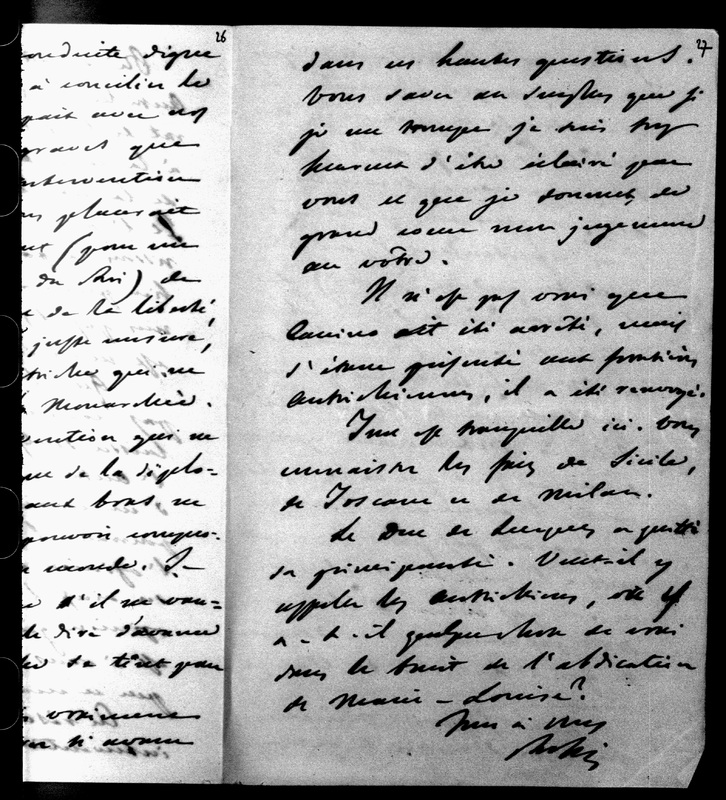 26
conduite digne
à concilier le
fait avec nos
graves que
intervention
plaçait
(pour un
du Roi) de
de la liberté,
juste mesure,
triche que ne
Monarchie.
vention qui ne
que de la diplo-
bout, ne
pouvoir compro-
monde. 
s'il ne vou-
dire d'avance
sa tient pour
vraiment
si avant
27
dans ces hautes questions.
Vous savez au surplus que si
je me trompe je suis trop
heureux d'être éclairé par
vous et que je soumets de
grand cœur mon jugement
au vôtre.
Il n'est pas vrai que
Canino ait été arrêté, mais
s'étant présenté aux frontières
autrichiennes, il a été renvoyé.
Tout est tranquille ici. Vous
connaissez les faits de Sicile,
de Toscane et de Milan.
Le Duc de Lucques a quitté
sa principauté. Veut-il y
appeler les autrichiens, ou y
a-t-il quelque chose de vrai
dans le bruit de l'abdication
de Marie-Louise?
Tout à vous